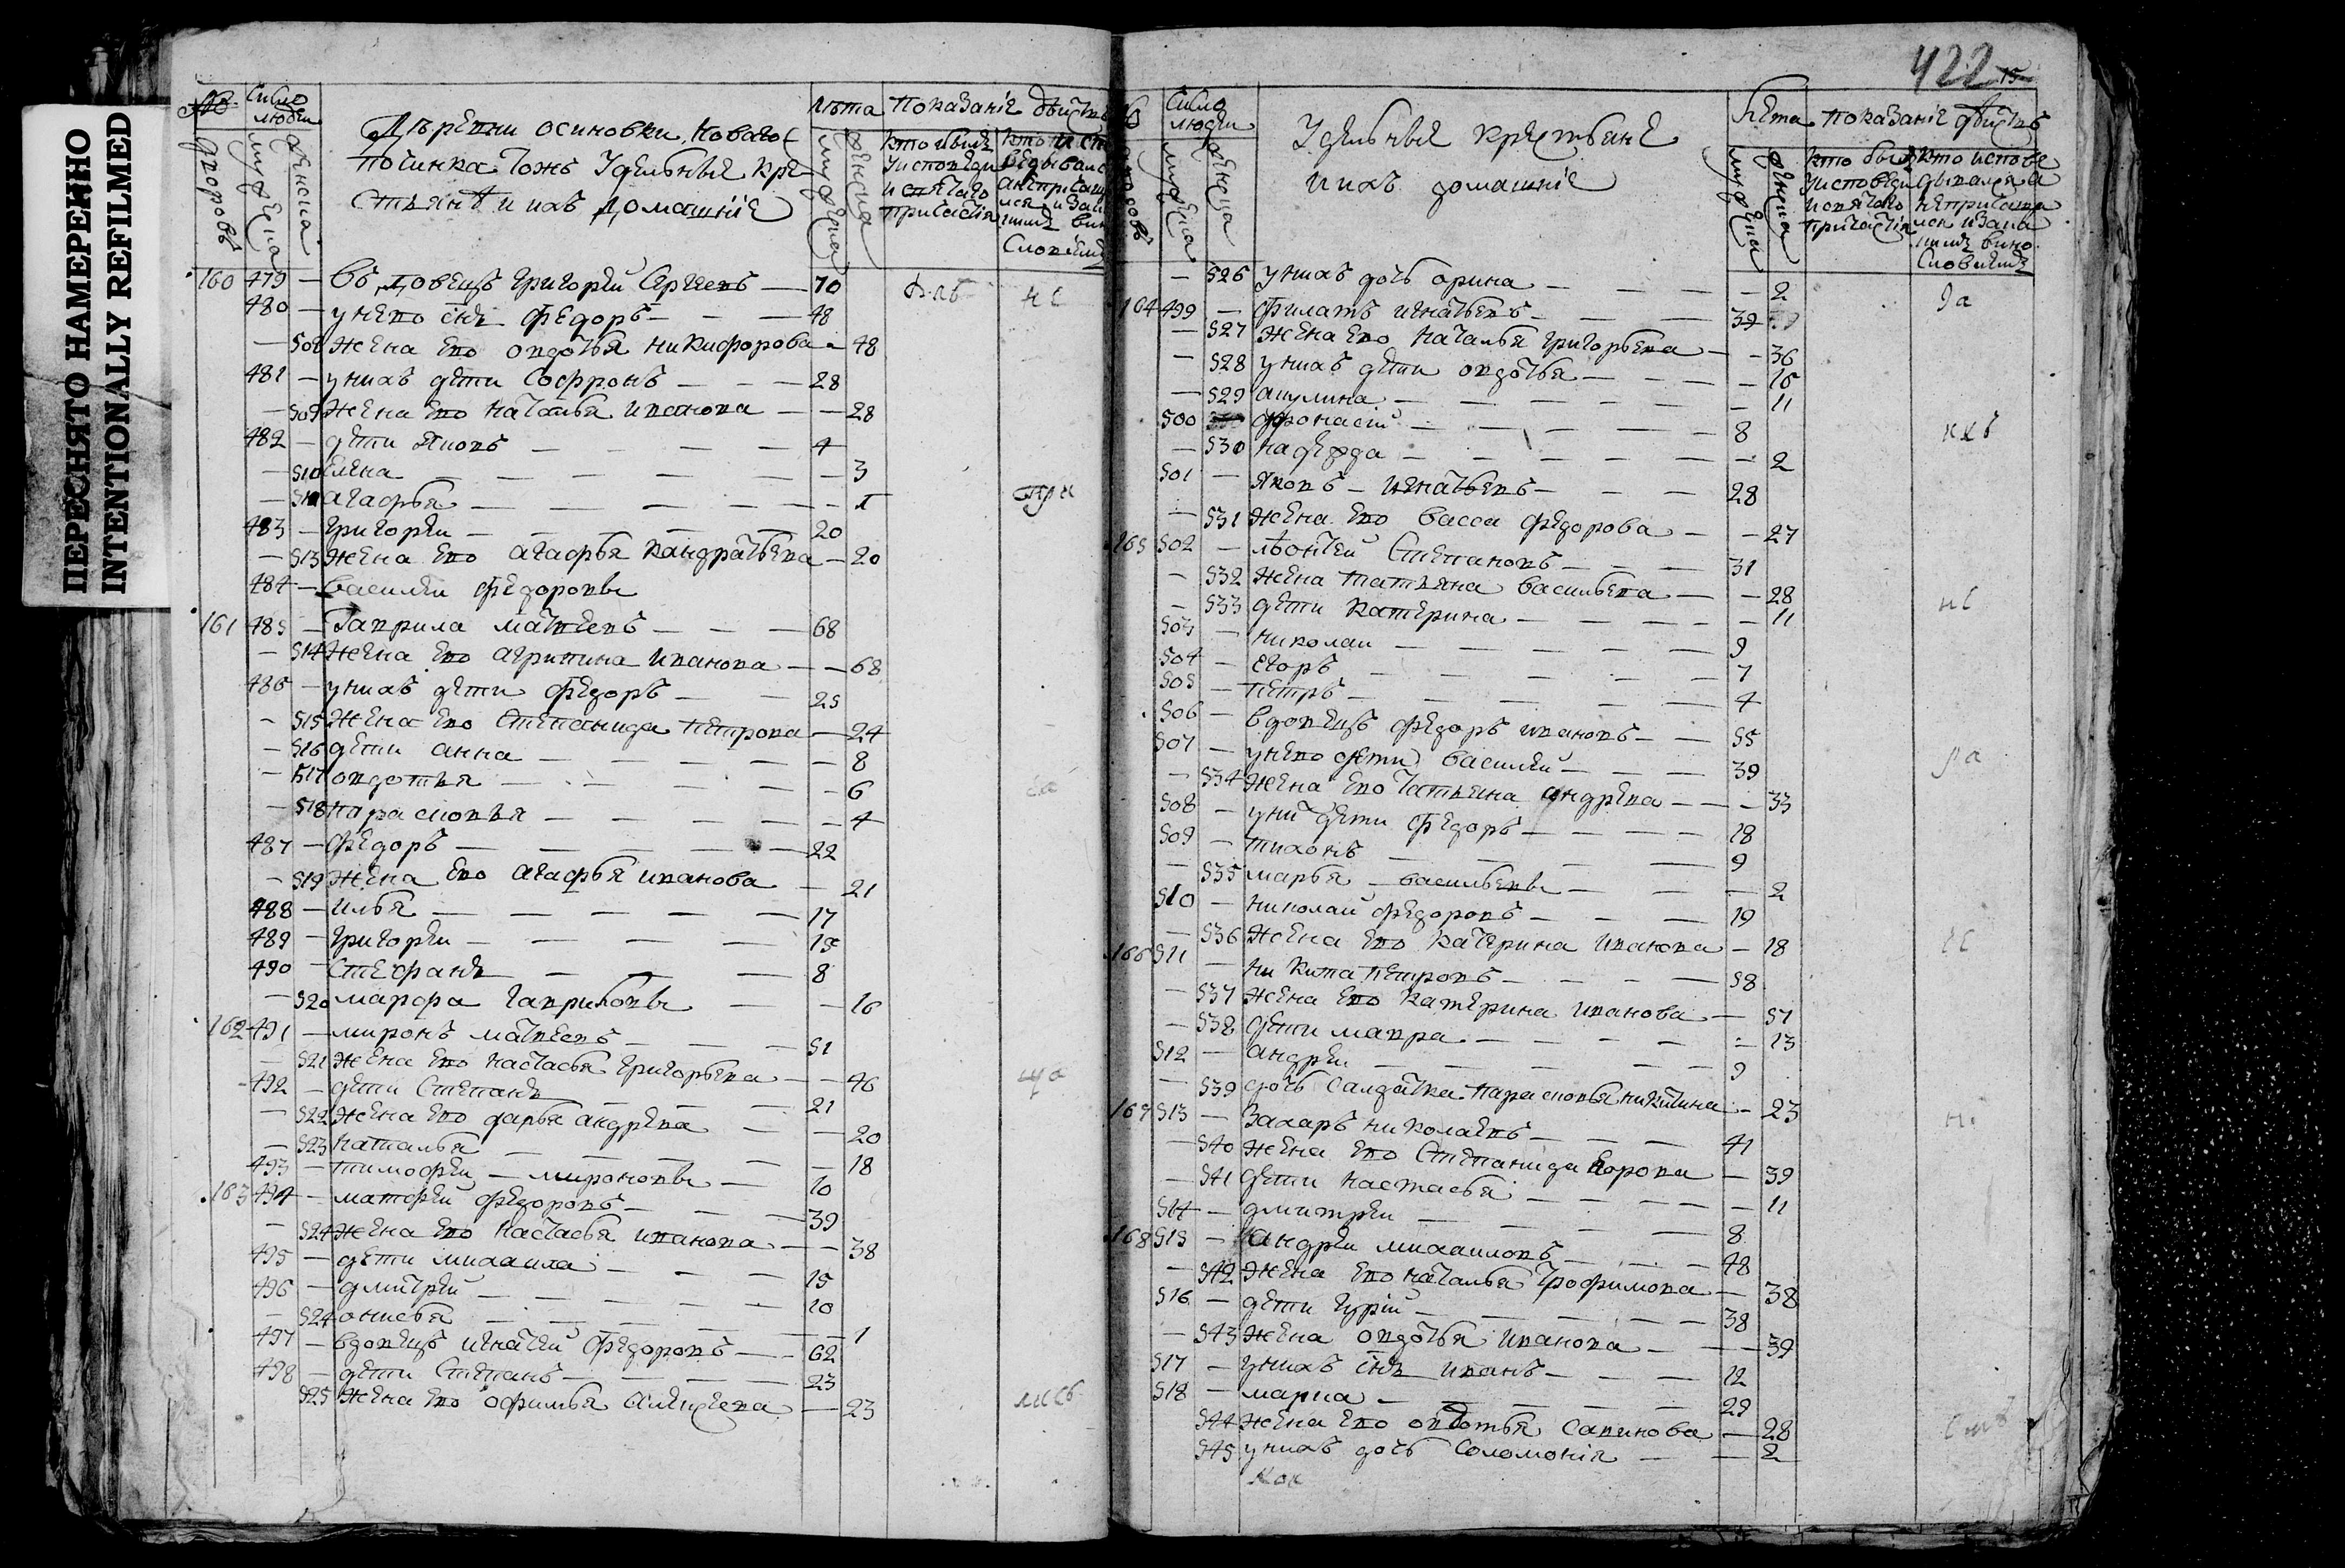 ПЕРЕСНЯТО НАМЕРЕННО
INTENTIONALLY REFILMED
№ дворовъ
Число людей
мужеска
женска
Деревни осиновки, новаго
починка тожъ Удельныя кре
стьянѣ и ихъ домашніе
лѣта
мужеска
женска
показаніе действ
кто были
у исповеди
и святаго
причастія
160 479 — вдовецъ григорей Сергеевъ — 70
480 — у него снъ федоръ — — 48
— 508 жена его овдотья никифорова — 48
481 — у нихъ дети Софронъ — — — 28
— 509 жена его наталья иванова — — 28
482 — дети яковъ — — — — 4
— 510 елена — — — — — 3
— агафья — — — — — 1
483 — григорей — — — — 20
— 513 жена его агафья кандратьева — 20
484 — василей федоровы
161 485 — Гаврила матвеевъ — — — 68
— 514 жена его агрипина иванова — — 68
486 — у нихъ дети федоръ — — 25
— 515 жена его степанида петрова — 24
— 516 дети анна — — — — — 8
— 517 овдотья — — — — — 6
— 518 парасковья — — — — — 4
487 — федоръ — — — — — 22
— 519 жена его агафья иванова — 21
488 — илья — — — — — 17
489 — григорей — — — — 15
490 — стефанъ — — — 8
— 520 марфа гавриловы — — 16
162 491 — миронъ матвеевъ — — — 51
— 521 жена его настасья григорьева — — 46
492 — дети Степанъ — — — 21
— 522 жена его дарья андрева — — 20
— 523 наталья — — — — — 18
493 — тимофей — мироновы — 10
163 494 — матфей федоровъ — — — 39
— 524 жена его настасья иванова — — 38
495 — дети михаила — — — 15
496 — дмитрей — — — — 10
— 524 онисья — — — — — 1
497 — вдовецъ игнатей федоровъ — — 62
498 — дети Степанъ — — — — 23
525 жена его офимья алексеева — 23
422
15
Число людей
мужеска
женска
Удельныя крестьяне
и ихъ домашніе
Лета
мужеска
женска
показаніе действ
кто были
у исповеди
и святаго
причастія
кто испове
дывался а
не причаща
лся и за ка
кимъ вино
словіемъ
— 526 у нихъ дочь орина — — — — 2
164 499 — филатъ игнатьевъ — — — 39
— 527 жена его наталья григорьева — — 36
— 528 у нихъ дети овдотья — — — — 15
— 529 акулина — — — — — — 11
500 афонасій — — — — — 8
— 530 надежда — — — — — — 2
501 — яковъ — игнатьевъ — — — 28
— 531 жена его васса федорова — — 27
165 502 — леонтей Степановъ — — — 31
— 532 жена татьяна васильева — — 28
— 533 дети катерина — — — — — 11
503 — николаи — — — — — 9
504 — егоръ — — — — — 7
505 — петръ — — — — — 4
506 — вдовецъ федоръ ивановъ — — 55
507 — у него дети василей — — — 39
— 534 жена его татьяна андрева — — — 33
508 — у ни дети федоръ — — — — 18
509 — тихонъ — — — — 9
— 535 марья — васильевы — — — 2
510 — николаи федоровъ — — — 19
— 536 жена его катерина иванова — 18
166 511 — никита петровъ — — — — 58
— 537 жена его катерина иванова — 57
— 538 дети мавра — — — — — 13
512 — андрей — — — — — 9
— 539 дочь салдатка парасковья никитина — 23
167 513 — Захаръ николаевъ — — — 41
— 540 жена его Степанида — 39
— 541 дети настасья — — — — — 11
514 — дмитрей — — — — 8
168 515 — андрей михаиловъ — — — 48
— 542 жена его наталья трофимова — 38
516 — дети гурій — — — — — 38
— 543 жена овдотья иванова — — — 39
517 — у нихъ снъ иванъ — — — 12
518 — — — — — — 29
544 жена его овдотья савинова — 28
545 у нихъ дочь Соломонія — — 2